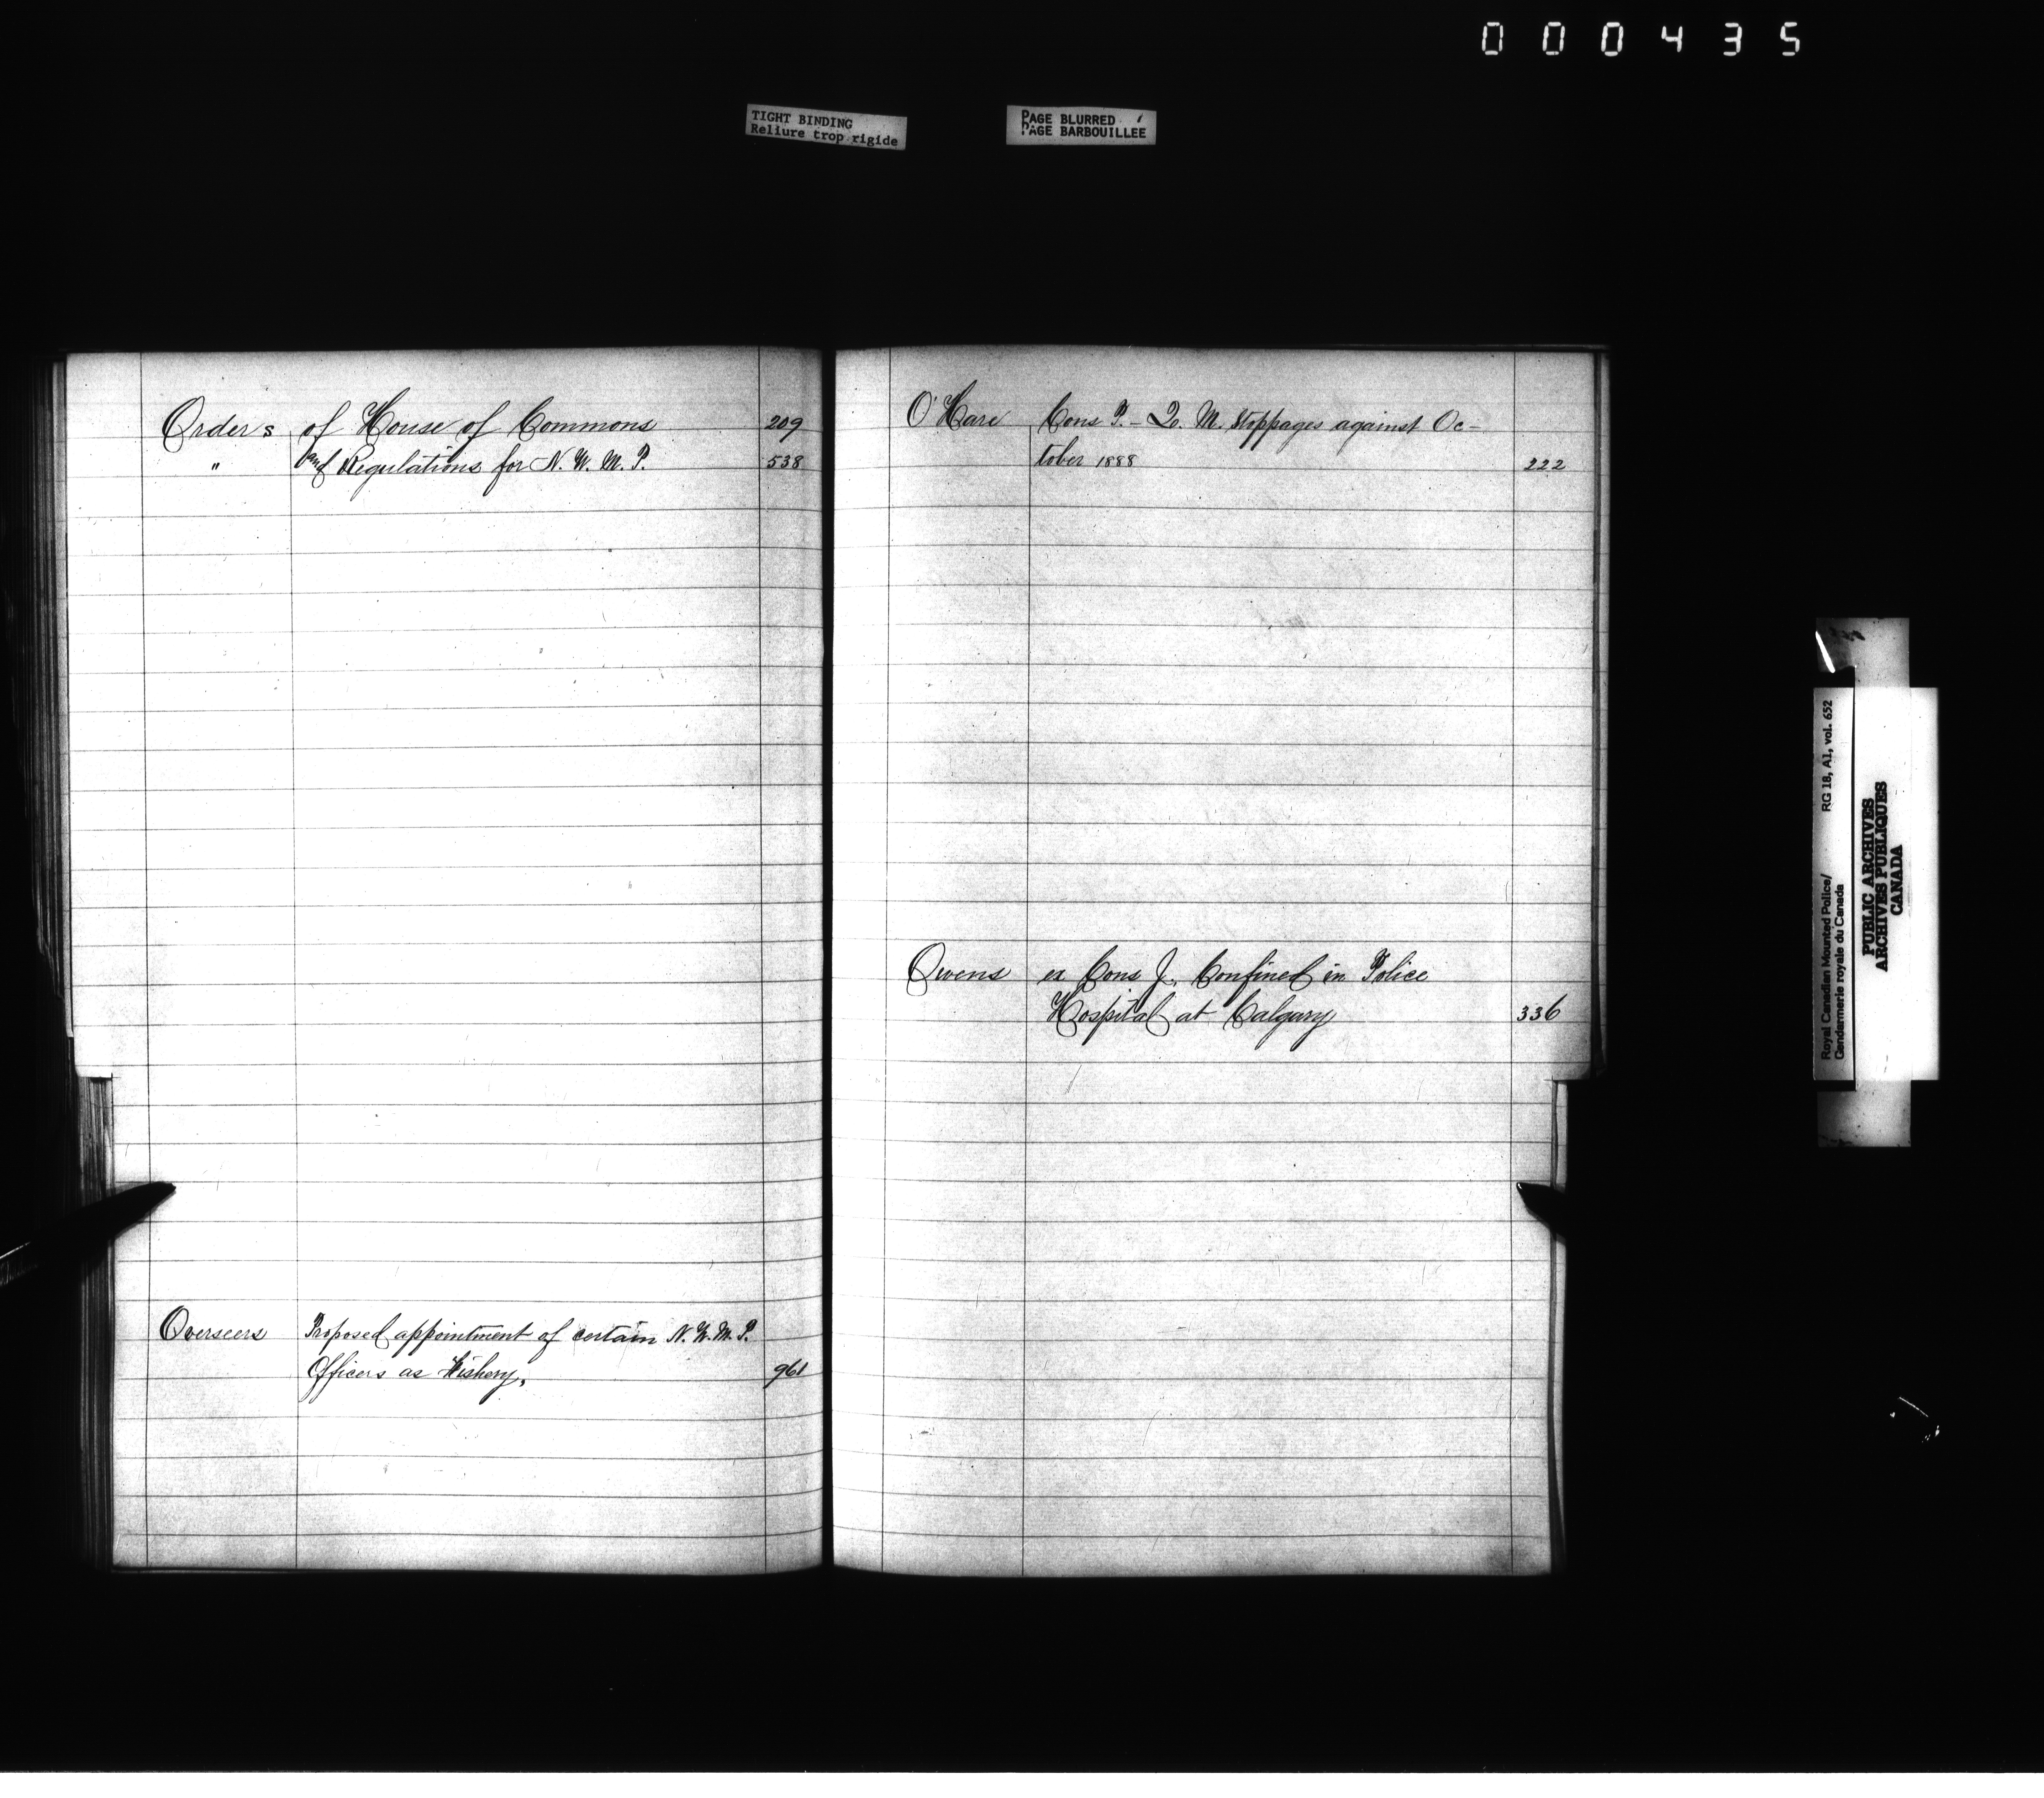 000435
TIGHT BINDING
Reliure trop rigide
PAGE BLURRED
PAGE BARBOUILLEE
Orders of House of Commons 209
" and Regulations for N. W. M. P. 538
Overseers Proposed appointment of certain N. W. M. P.
Officers as Fishery, 961
O'Hare Cons P. - Q. M. Stoppages against Oc-
tober 1888 222
Owens ex Cons J. Confined in Police
Hospital at Calgary 336
Royal Canadian Mounted Police/ RG 18, A1, vol. 652
Gendarmerie royale du Canada
PUBLIC ARCHIVES
ARCHIVES PUBLIQUES
CANADA